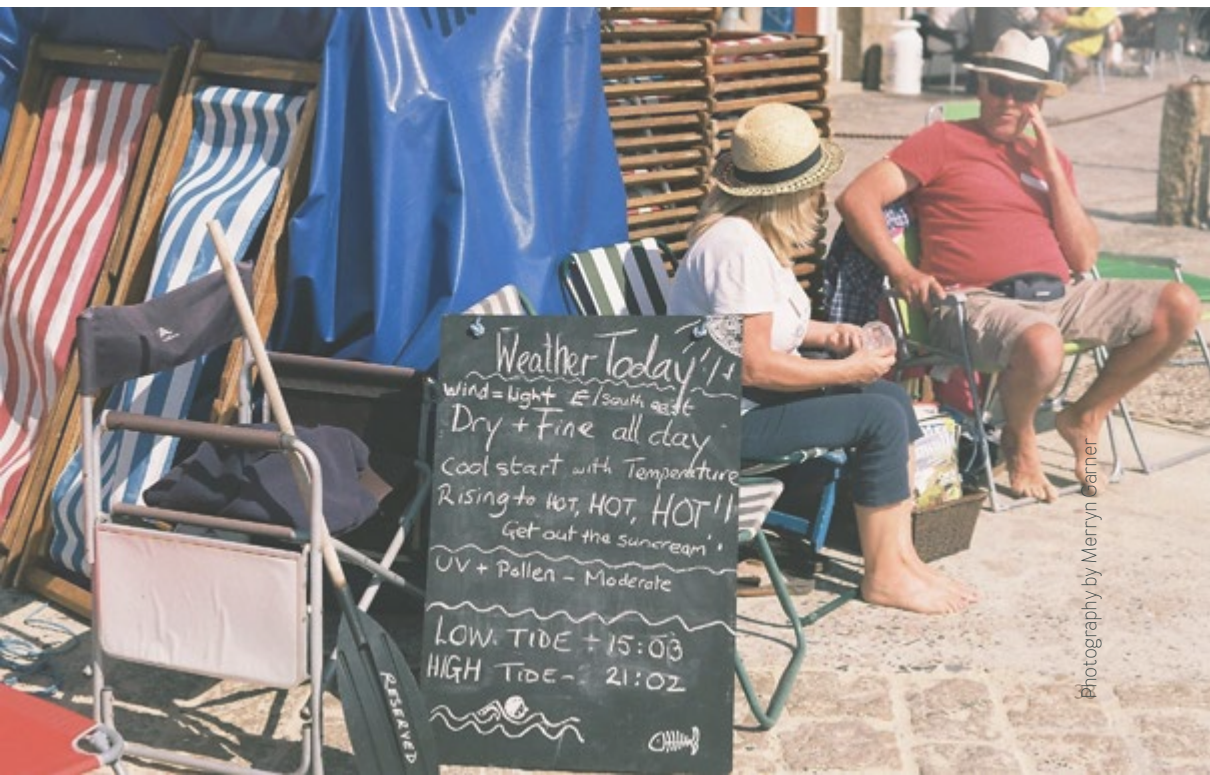 Weather Today!!
Wind = Light E/South east
Dry + Fine all day
Cool start with Temperature
Rising to HOT, HOT, HOT!!
Get out the suncream!
UV + Pollen - Moderate
LOW TIDE - 15:03
HIGH TIDE - 21:02
RESERVED
Photography by Merryn Garner